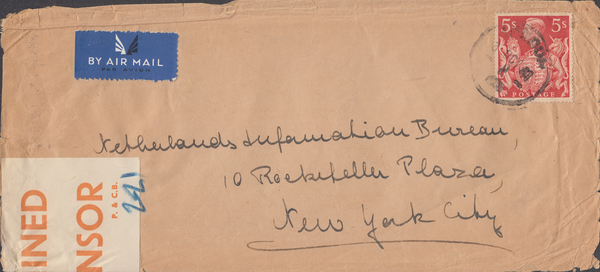 BY AIR MAIL
PAR AVION
5s 5s
POSTAGE
Netherlands Information Bureau,
10 Rockefeller Plaza,
New York City
INED
NSOR
P. & C.B.
221